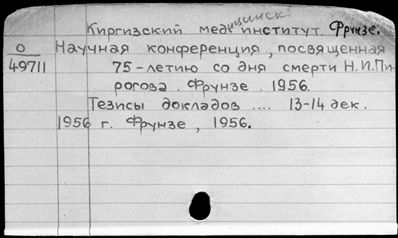 Киргизский медицинский институт. Фрунзе.
О
49711
Научная конференция, посвященная
75-летию со дня смерти Н.И.Пи-
рогова. Фрунзе. 1956.
Тезисы докладов .... 13-14 дек.
1956 г. Фрунзе, 1956.